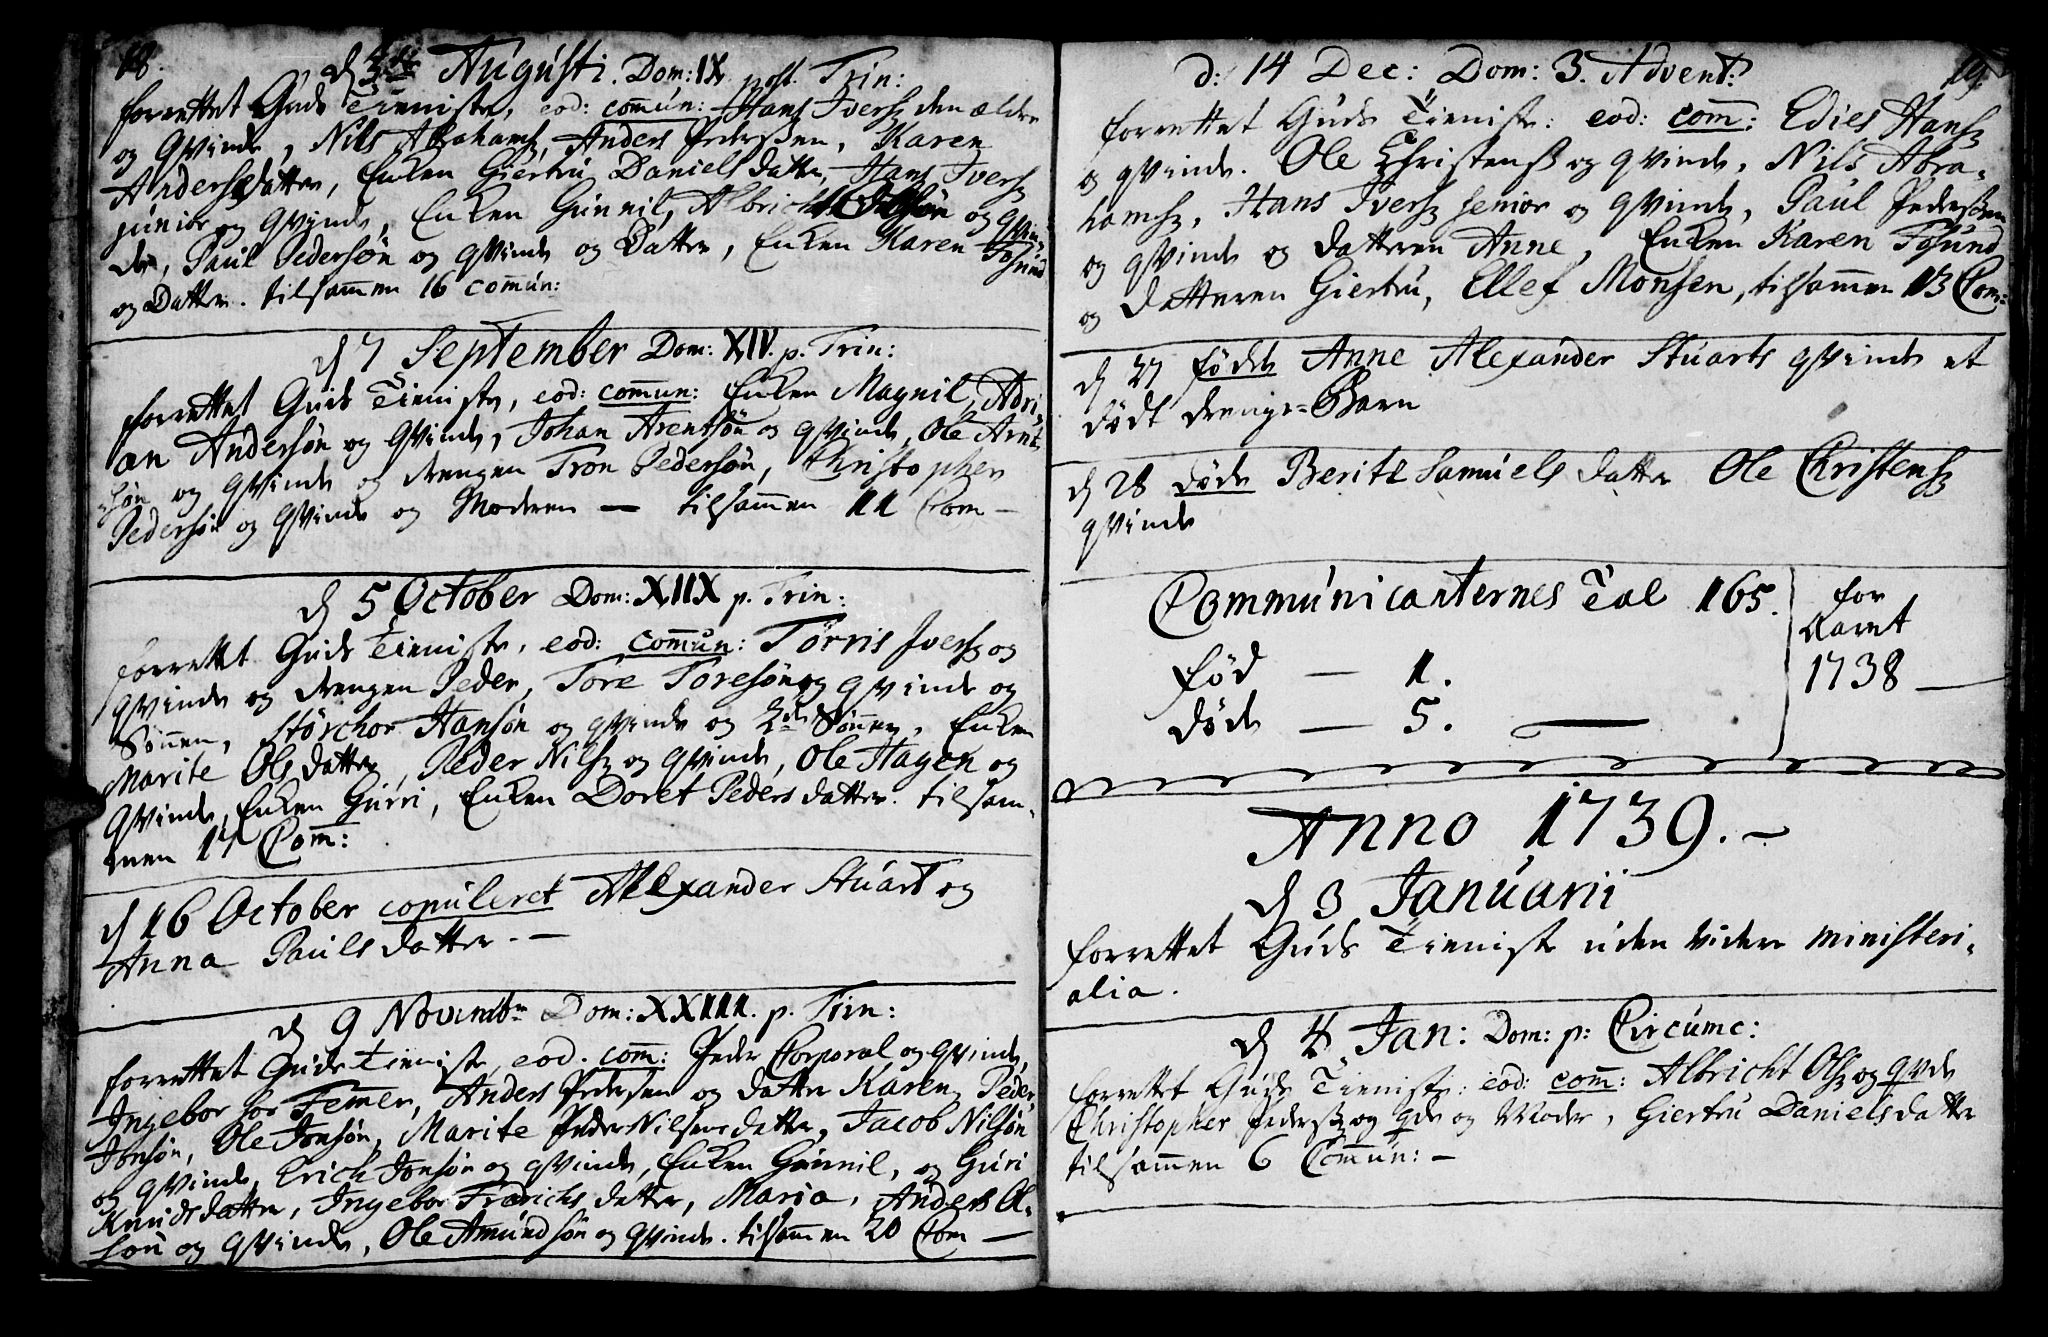 18.
d 3die Augusti. Dom: IX post. Trin:
forrettet Guds Tieniste, eod: comun: Hans Iversz den ældre
og qvinde, Nils Abrahamsz, Anders Pederssen, Karen
Andersdatter, Enken Giertru Daniels datter, Hans Iversz
junior og qvinde, Enken Gunnil, Albricht Olssøn og qvin,
de, Paul Pedersøn og qvinde og Datter, Enken Karen Fosund
og Datter. tilsamen 16 comun:
d 7 September Dom: XIV. p. Trin:
forrettet Guds Tieniste, eod: comun: Enken Magnil, Adri,
an Andersøn og qvinde, Johan Arentsøn og qvinde, Ole Arnt
søn og qvinde og drengen Tron Pedersøn, Christopher
Pedersøn og qvinde og Moderen — tilsamen 11 Com —
d 5 October Dom: XIIX p. Trin:
forrettet Guds Tieniste, eod: comun: Tørris Iversz og
qvinde og drengen Peder, Tore Toresøn og qvinde og
Sønnen, Størchor Hansøn og qvinde og 2de Sønner, Enken
Marite Ols datter, Peder Nilsz og qvinde, Ole Hagen og
qvinde, Enken Gurri, Enken Doret Peders datter. tilsam,
men 17 Com:
d 16 October copuleret Alexander Stuart og
Anna Pauls datter. —
d 9 Novembr Dom: XXIII. p. Trin:
forrettet Guds Tieniste, eod. com: Peder Corporal og qvinde,
Ingebor hos Femer, Anders Pedersen og datter Karen, Peder
Jonsøn, Ole Jonsøn, Marite Peder Nilsens datter, Jacob Nilsøn
og qvinde, Erich Jonsøn og qvinde, Enken Gunnil, og Guri
Knudsdatter, Ingebor Fredrichs datter, Maria, Anders Ol,
søn og qvinde, Ole Amundsøn og qvinde. tilsamen 20 Com —
19.
d: 14 Dec: Dom: 3. Advent:
forrettet Guds Tieniste: eod: com: Edies Hansz
og qvinde. Ole Christenss og qvinde, Nils Abra,
hamsz, Hans Iversz senior og qvinde, Paul Pederssen
og qvinde og datteren Anne, Enken Karen Fosund
og datteren Giertru, Ellef Monsen, tilsamen 13 Com:
d 27 fødde Anne Alexander Stuarts qvinde et
dødt drenge=Barn
d 28 døde Berite Samuels datter Ole Christensz
qvinde
Communicanternes Tal 165.
for
Aaret
1738 —
fød — 1.
døde — 5. —
Anno 1739. —
d 3 Januarii
forrettet Guds Tieniste uden videre ministeri,
alia.
d 4 Jan: Dom: p: Circumc:
forrettet Guds Tieniste: eod: com: Albricht Olsz og qvde
Christopher Pedersz og qde og Moder, Giertru Danielsdatter
tilsamen 6 Comun: —